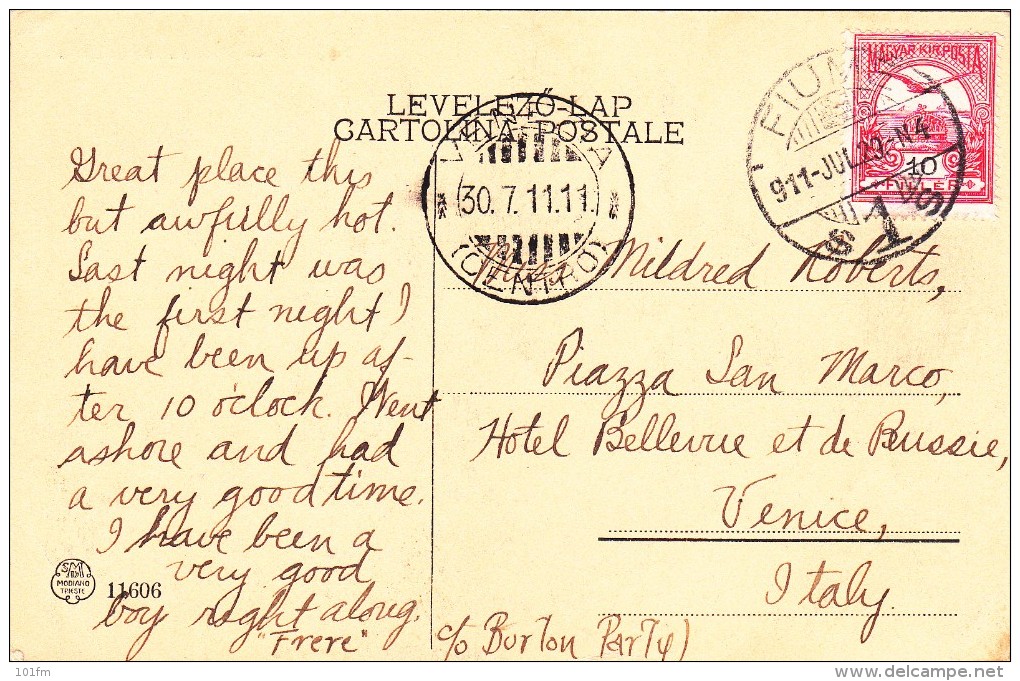 LEVELEZŐ-LAP
CARTOLINA POSTALE
MAGYAR KIR. POSTA
10
FILLÉR
FIUME
911-JUL.29-N4
1
VENEZIA
30.7.11.11
(CENTRO)
Great place this
but awfully hot.
Last night was
the first night I
have been up af-
ter 10 o'clock. Went
ashore and had
a very good time.
I have been a
very good
boy right along.
"Frere"
Miss Mildred Roberts,
Piazza San Marco,
Hotel Bellevue et de Russie,
Venice,
Italy.
c/o Burton Party)
SM
MODIANO
TRIESTE
11606
101fm
www.delcampe.net